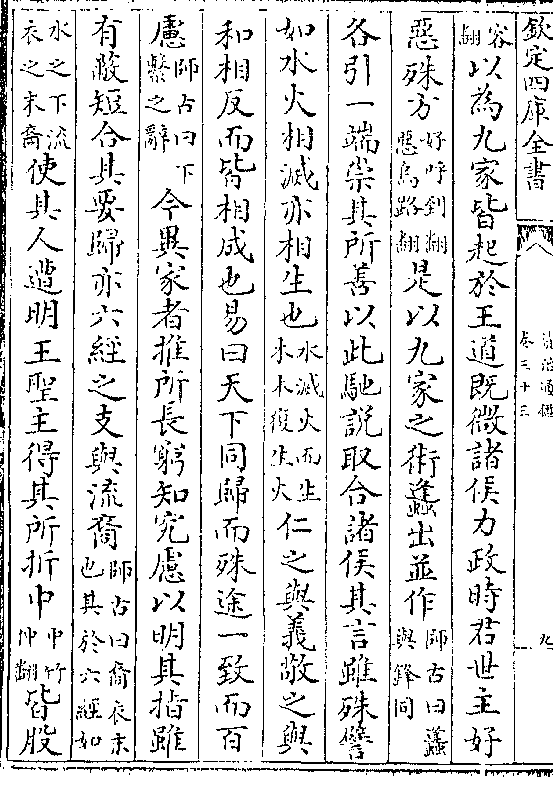 欽定四庫全書
卷三十三
九
容翻以為九家皆起於王道既微諸侯力政時君世主好
惡殊方好呼到翻惡烏路翻是以九家之術蠭出並作師古曰蠭與鋒同
各引一端崇其所善以此馳說取合諸侯其言雖殊譬
如水火相滅亦相生也水滅火而生木木復生火仁之與義敬之與
和相反而皆相成也易曰天下同歸而殊途一致而百
慮師古曰下繫之辭今異家者推所長窮知究慮以明其指雖
有蔽短合其要歸亦六經之支與流裔師古曰裔衣末也其於六經如
水之下流衣之末裔使其人遭明王聖主得其所折中中竹仲翻皆股